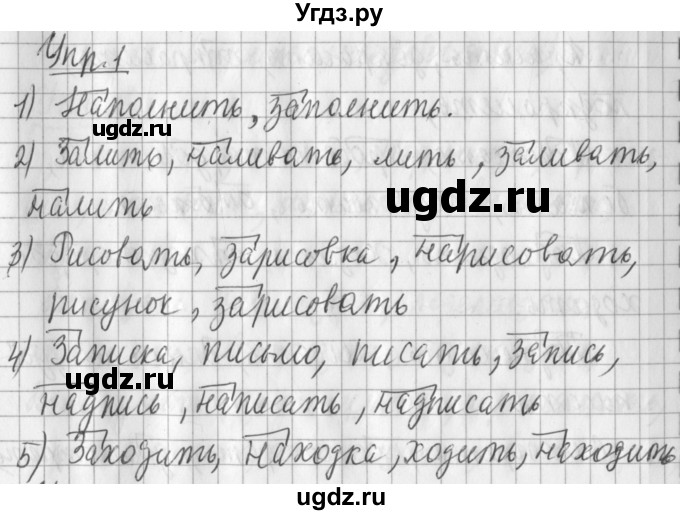 Угдз.ру
Упр.1
1) Наполнить, заполнить.
ugdz.ru
2) Залить, наливать, лить, заливать,
ugdz.ru
налить
3) Рисовать, зарисовка, нарисовать,
ugdz.ru
рисунок, зарисовать
4) Записка, письмо, писать, запись,
ugdz.ru
надпись, написать, надписать
ugdz.ru
5) Заходить, находка, ходить, находить
ugdz.ru